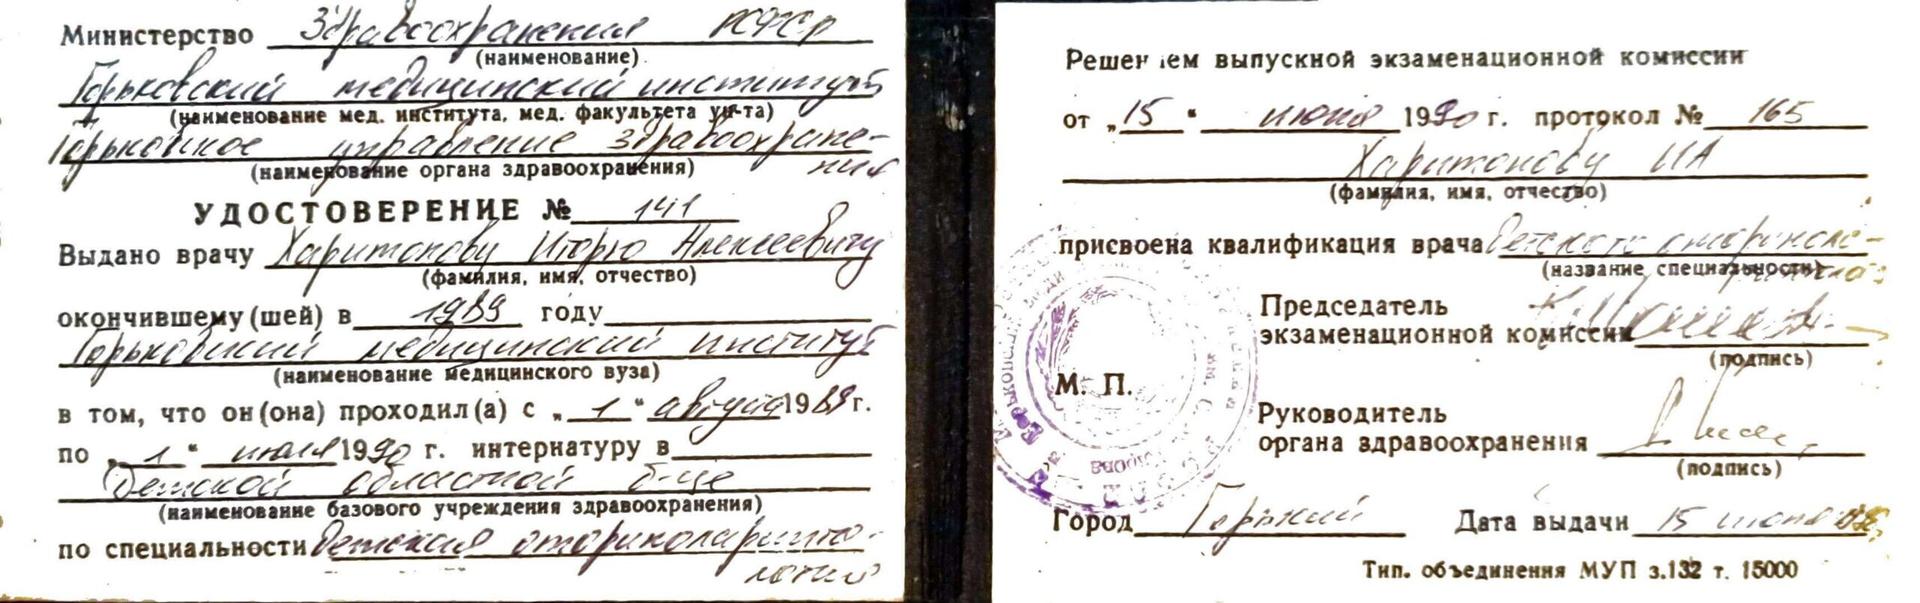 Министерство Здравоохранения РСФСР
(наименование)
Горьковский медицинский институт
(наименование мед. института, мед. факультета ун-та)
Горьковское управление здравоохране-
ния
(наименование органа здравоохранения)
УДОСТОВЕРЕНИЕ № 141
Выдано врачу Харитонову Игорю Алексеевичу
(фамилия, имя, отчество)
окончившему(шей) в 1989 году
Горьковский медицинский институт
(наименование медицинского вуза)
в том, что он(она) проходил(а) с „1“ августа 1989 г.
по „1“ июля 1990 г. интернатуру в
Детской областной б-це
(наименование базового учреждения здравоохранения)
по специальности Детская оториноларинго-
логия
Решением выпускной экзаменационной комиссии
от „15“ июня 1990 г. протокол № 165
Харитонову ИА
(фамилия, имя, отчество)
присвоена квалификация врача Детского оторинола-
(название специальности)
Председатель
экзаменационной комиссии
(подпись)
М. П.
Руководитель
органа здравоохранения
(подпись)
Город Горький Дата выдачи 15 июня
Тип. объединения МУП з.132 т. 15000